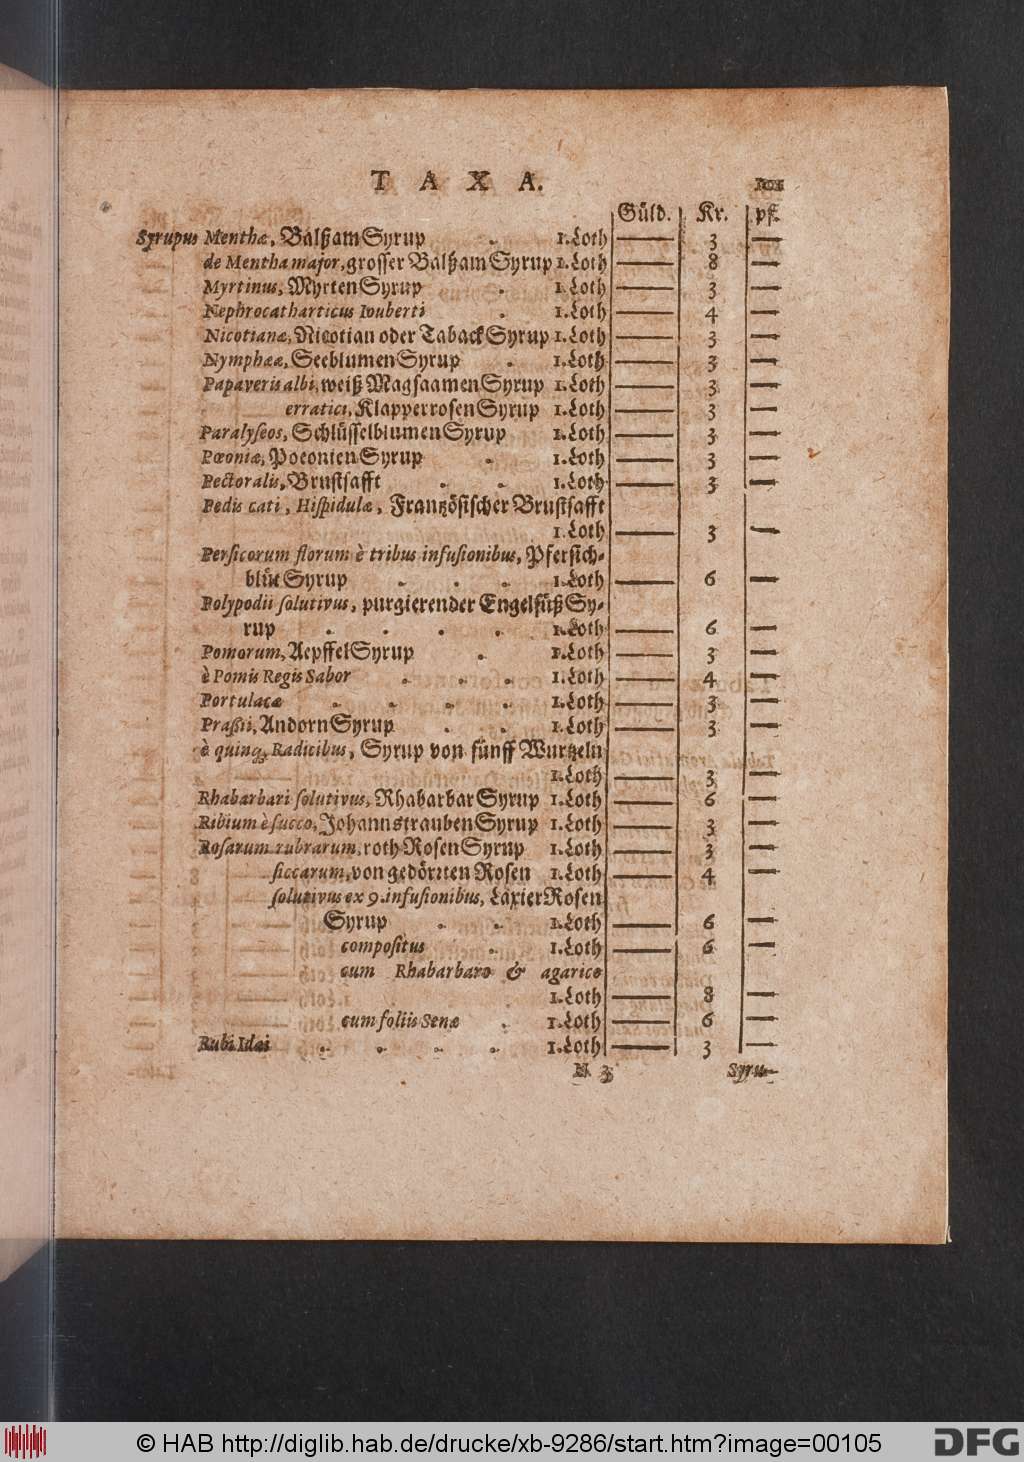 TAXA. 101
Güld. Kr. pf.
Syrupus Menthæ, BalßamSyrup . 1. Loth — 3 —
de Mentha major, grosser BalßamSyrup 1. Loth — 8 —
Myrtinus, MyrtenSyrup . 1. Loth — 3 —
Nephrocatharticus Iouberti . 1. Loth — 4 —
Nicotianæ, Nicotian oder TabackSyrup 1. Loth — 3 —
Nymphææ, SeeblumenSyrup . 1. Loth — 3 —
Papaveris albi, weiß MagsaamenSyrup 1. Loth — 3 —
erratici, KlapperrosenSyrup 1. Loth — 3 —
Paralyseos, SchlüsselblumenSyrup 1. Loth — 3 —
Pœoniæ, PoeonienSyrup . 1. Loth — 3 —
Pectoralis, Brustsafft . . 1. Loth — 3 —
Pedis cati, Hispidulæ, Frantzösischer Brustsafft
1. Loth — 3 —
Persicorum florum è tribus infusionibus, Pfersich-
blüt Syrup . . . 1. Loth — 6 —
Polypodii solutivus, purgierender Engelsüß Sy-
rup . . . . 1. Loth — 6 —
Pomorum, AepffelSyrup . 1. Loth — 3 —
è Pomis Regis Sabor . . . 1. Loth — 4 —
Portulacæ . . . . 1. Loth — 3 —
Praßii, AndornSyrup . . 1. Loth — 3 —
è quinq; Radicibus, Syrup von fünff Wurtzeln
1. Loth — 3 —
Rhabarbari solutivus, RhabarbarSyrup 1. Loth — 6 —
Ribium è succo, JohannstraubenSyrup 1. Loth — 3 —
Rosarum rubrarum, roth RosenSyrup 1. Loth — 3 —
siccarum, von gedörrten Rosen 1. Loth — 4 —
solutivus ex 9. infusionibus, LaxierRosen
Syrup . . 1. Loth — 6 —
compositus . 1. Loth — 6 —
cum Rhabarbaro & agarico
1. Loth — 8 —
cum foliis Senæ . 1. Loth — 6 —
Rubi Idæi . . . . 1. Loth — 3 —
N 3 Syru-
© HAB http://diglib.hab.de/drucke/xb-9286/start.htm?image=00105
DFG